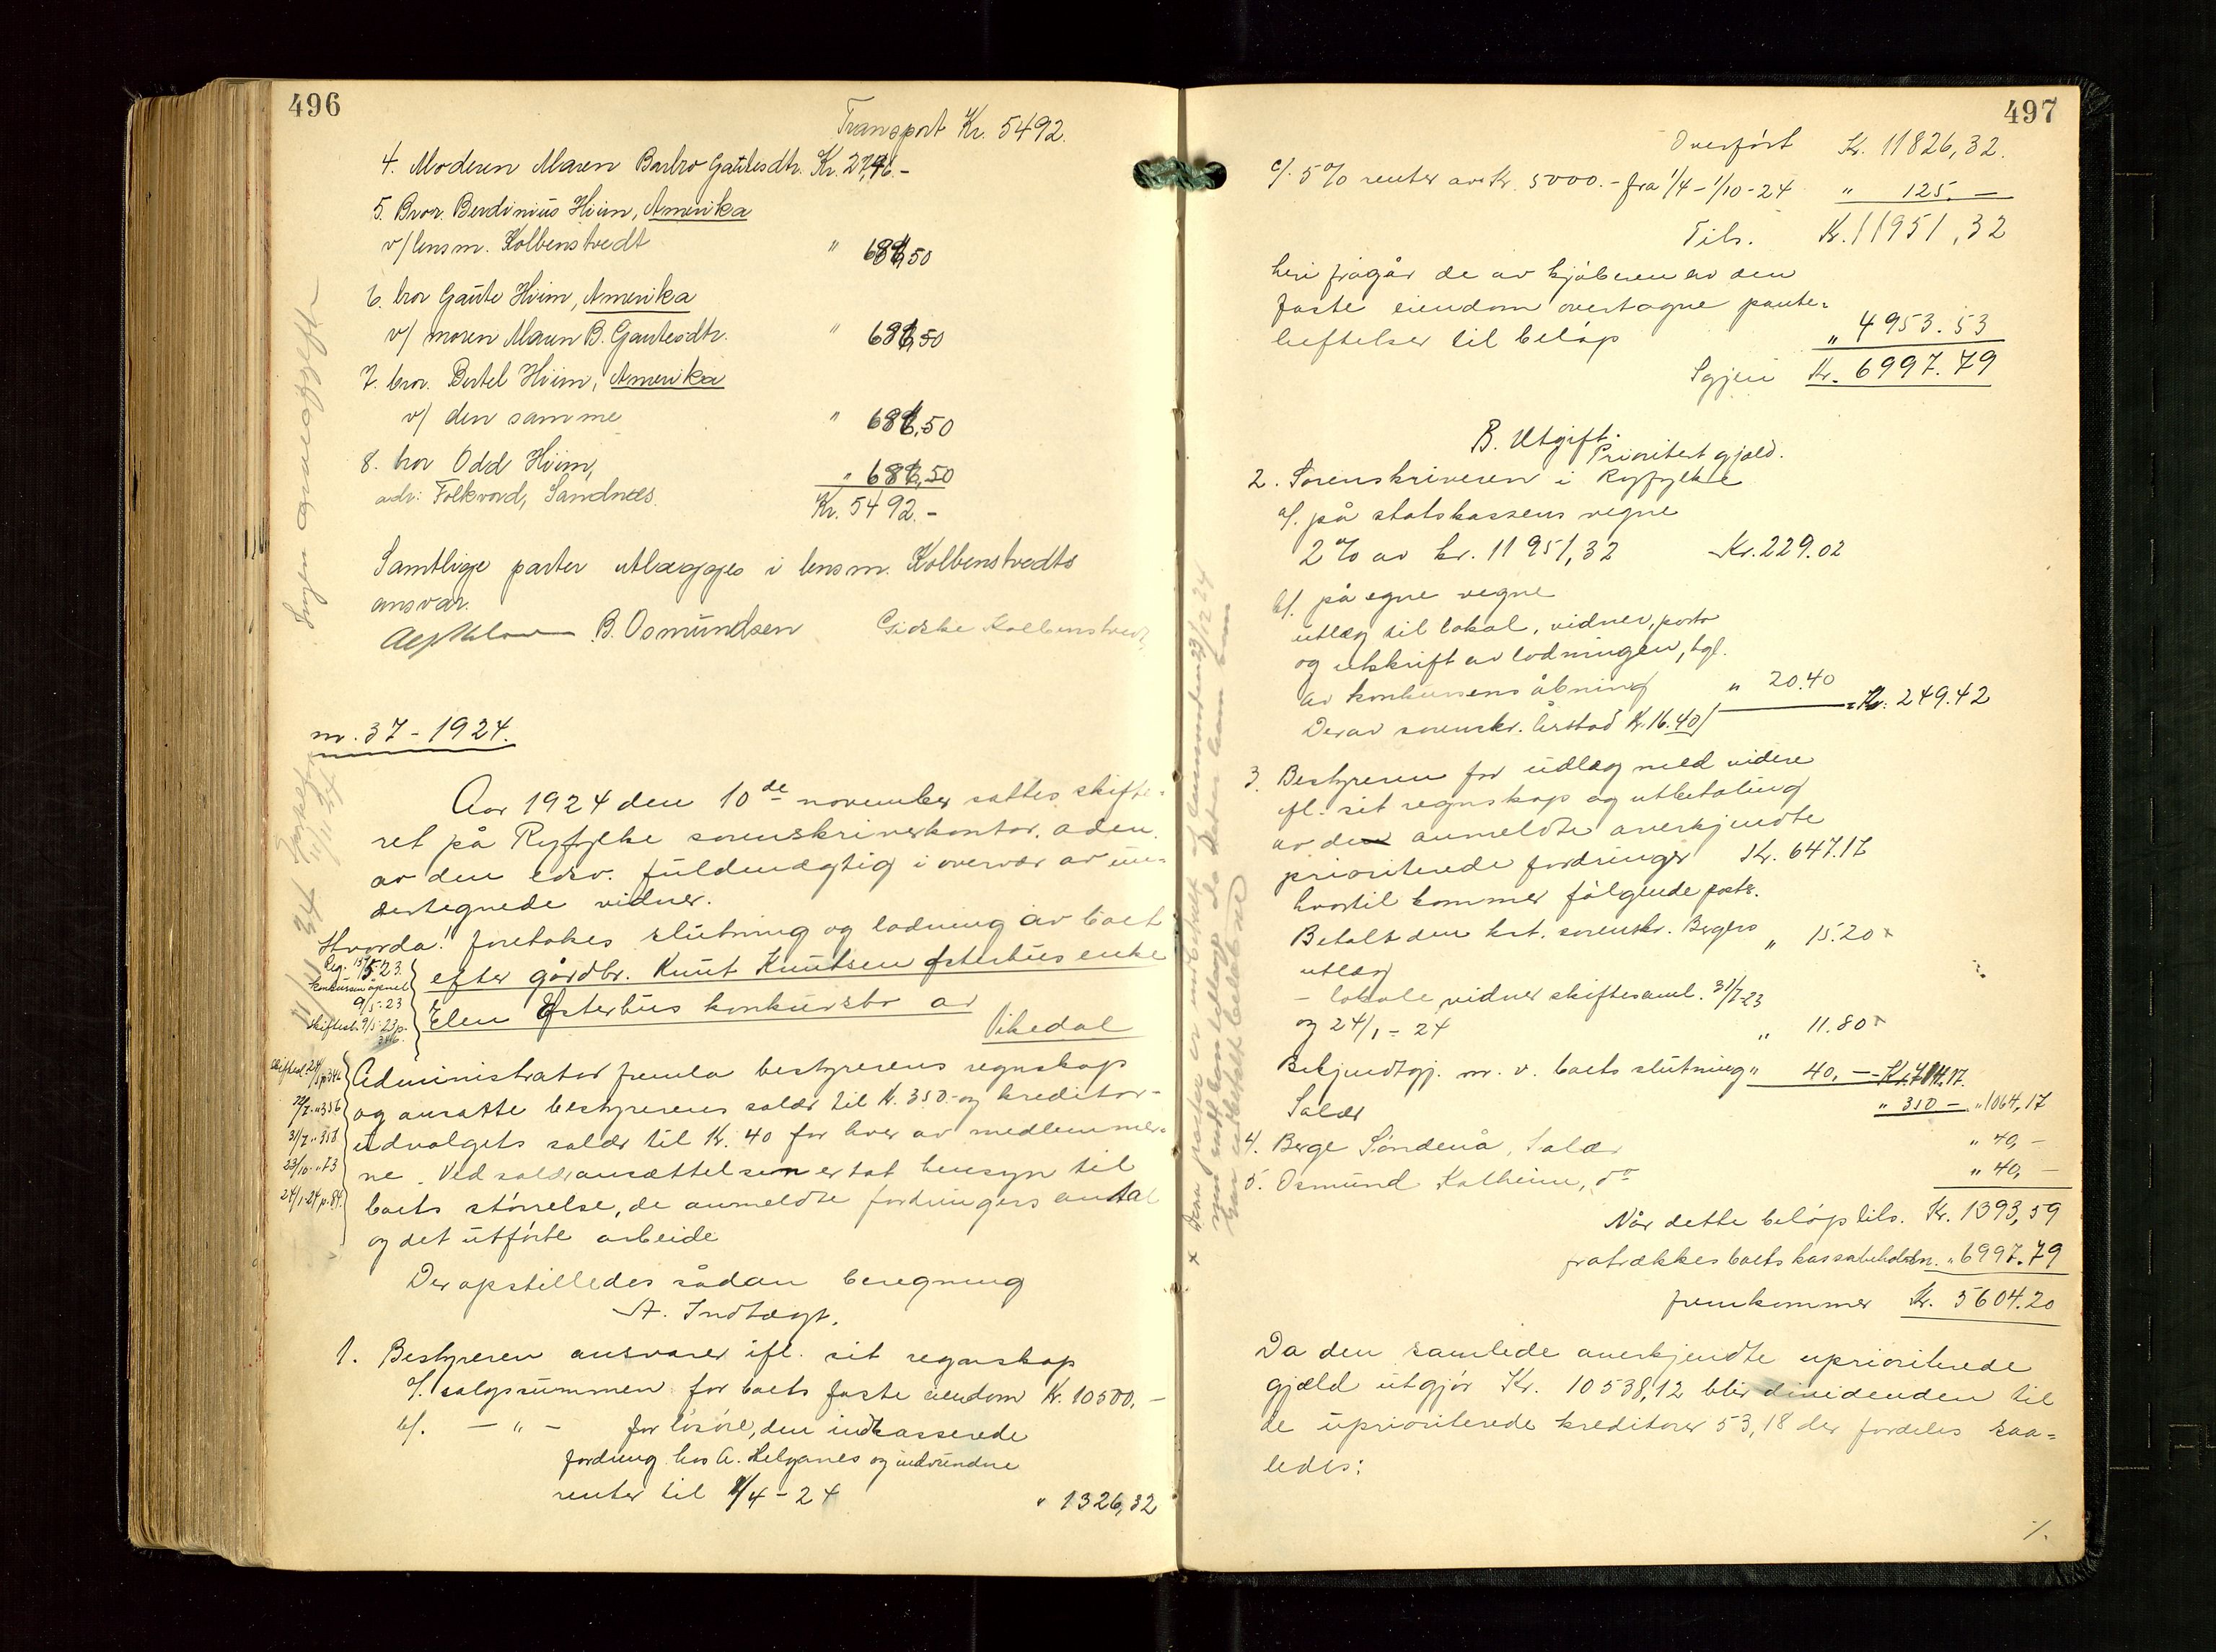 496
Transport Kr. 5492.
4. Moderen Maren Barbro Gautesdtr. Kr. 2746.-
5. Bror. Berdinius Hiim, Amerika
v/ lensm. Kolbenstvedt " 686,50
6. bror Gaute Hiim, Amerika
v/ moren Maren B. Gautesdtr. " 686,50
7. bror. Bertel Hiim, Amerika
v/ den samme " 686,50
8. bror Odd Hiim,
adr: Folkvord, Sandnes. " 686,50
Kr. 5492.-
Samtlige parter utlægges i lensm. Kolbenstvedts
ansvar.
B. Osmundsen Gidske Kolbenstvedt
Ingen
nr. 37 - 1924.
Aar 1924 den 10de november sattes skifte-
ret på Ryfylke sorenskriverkontor. adm.
av den edsv. fuldmægtig i overvær av un-
dertegnede vidner.
Hvorda! foretokes slutning og lodning av boet
efter gårdbr. Knut Knutsen Østerhus enke
Elen Østerhus konkursbo av
Vikedal
Reg. 5.23.
9/5-23
skiftesl. 9/5-23 p.
346.
Administrator fremla bestyrerens regnskap
og ansatte bestyrerens salær til kr. 350.- og kreditor-
udvalgets salær til Kr. 40 for hver av medlemmer-
ne. Ved salæransættelsen er tat hensyn til
boets størrelse, de anmeldte fordringers antal
og det utførte arbeide
31/7 " 358
24/1-24 p. 84.
Der opstilledes sådan beregning
A. Indtægt.
1. Bestyreren ansvarer ifl. sit regnskap
a/. salgssummen for boets faste eiendom Kr. 10500.-
b/. - " - for løsøre, den indkasserede
fordring hos A. Helganes og indvundne
renter til 1/4-24 " 1326,32
497
Overført Kr. 11826,32.
c/. 5% renter av kr. 5000.- fra 1/4 - 1/10-24 " 125.-
Tils. Kr. 11951,32
heri frågår de av kjøberen av den
faste eiendom overtagne pante-
heftelser til beløp " 4953.53
Igjen Kr. 6997.79
B. Utgift.
Prioritert gjæld.
2. Sorenskriveren i Ryfylke
a/. på statskassens vegne
2% av kr. 11951,32 Kr. 229.02
b/. på egne vegne
utlæg til lokal, vidner, porto
og utskrift av lodningen, tgl.
av konkursens åbning " 20.40 = Kr. 249.42
Derav sorenskr. Årstad Kr. 16.40
3. Bestyreren for udlæg m.v. videre
ifl. sit regnskap og utbetaling
av de anmeldte anerkjendte
prioriterede fordringer Kr. 647.17
hvortil kommer følgende poster.
Betalt den kst. sorenskr. Bergers
utlæg " 15.20 x
- lokale vidner skiftesaml. 31/7-23
og 24/1 - 24 " 11.80 x
Bekjendtgj. m. v. boets slutning " 40,- - Kr. 714.17.
Salær " 350 - " 1064,17
4. Berge Søndenå, Salær " 40,-
5. Osmund Kalheim, do " 40,-
Når dette beløp tils. Kr. 1393,59
fratrækkes boets kassabeholdn. " 6997.79
fremkommer Kr. 5604.20
Da den samlede anerkjendte uprioriterede
gjæld utgjør Kr. 10538,12 blir dividenden til
de uprioriterede kreditorer 53,18 der fordeles saa-
ledes:
./.